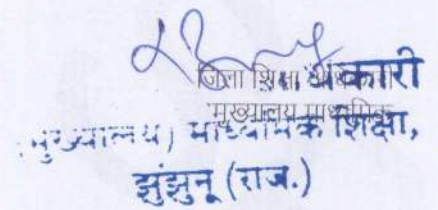 जिला शिक्षा अधिकारी
मुख्यालय माध्यमिक
(मुख्यालय) माध्यमिक शिक्षा,
झुंझुनू (राज.)